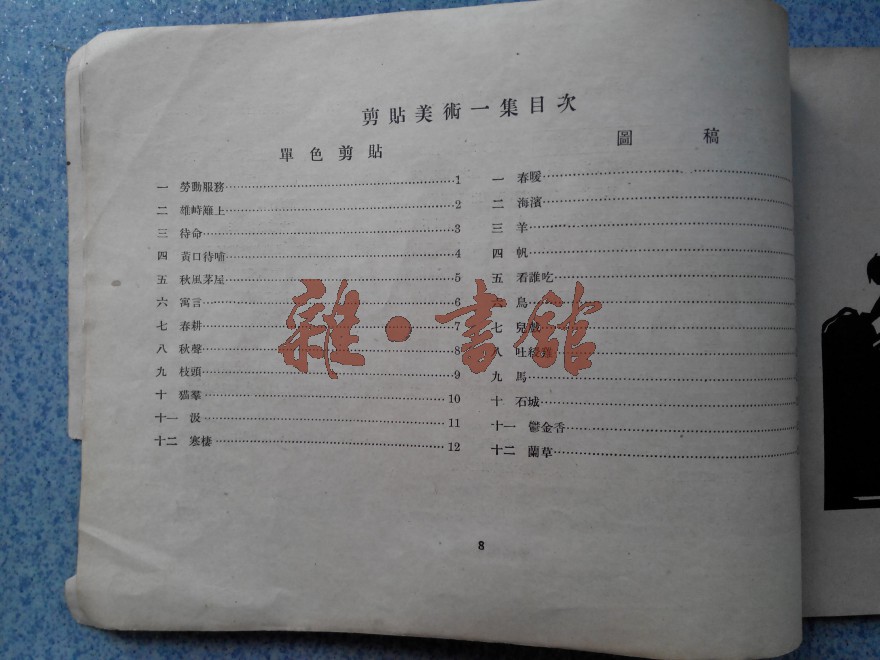 剪貼美術一集目次
單色剪貼
一 勞動服務 1
二 雄峙籬上 2
三 待命 3
四 黃口待哺 4
五 秋風茅屋 5
六 寓言 6
七 春耕 7
八 秋聲 8
九 枝頭 9
十 貓羣 10
十一 汲 11
十二 寒棲 12
圖稿
一 春暖
二 海濱
三 羊
四 帆
五 看誰吃
六
七 兒戲
八 吐綬雞
九 馬
十 石城
十一 鬱金香
十二 蘭草
8
雜·書館